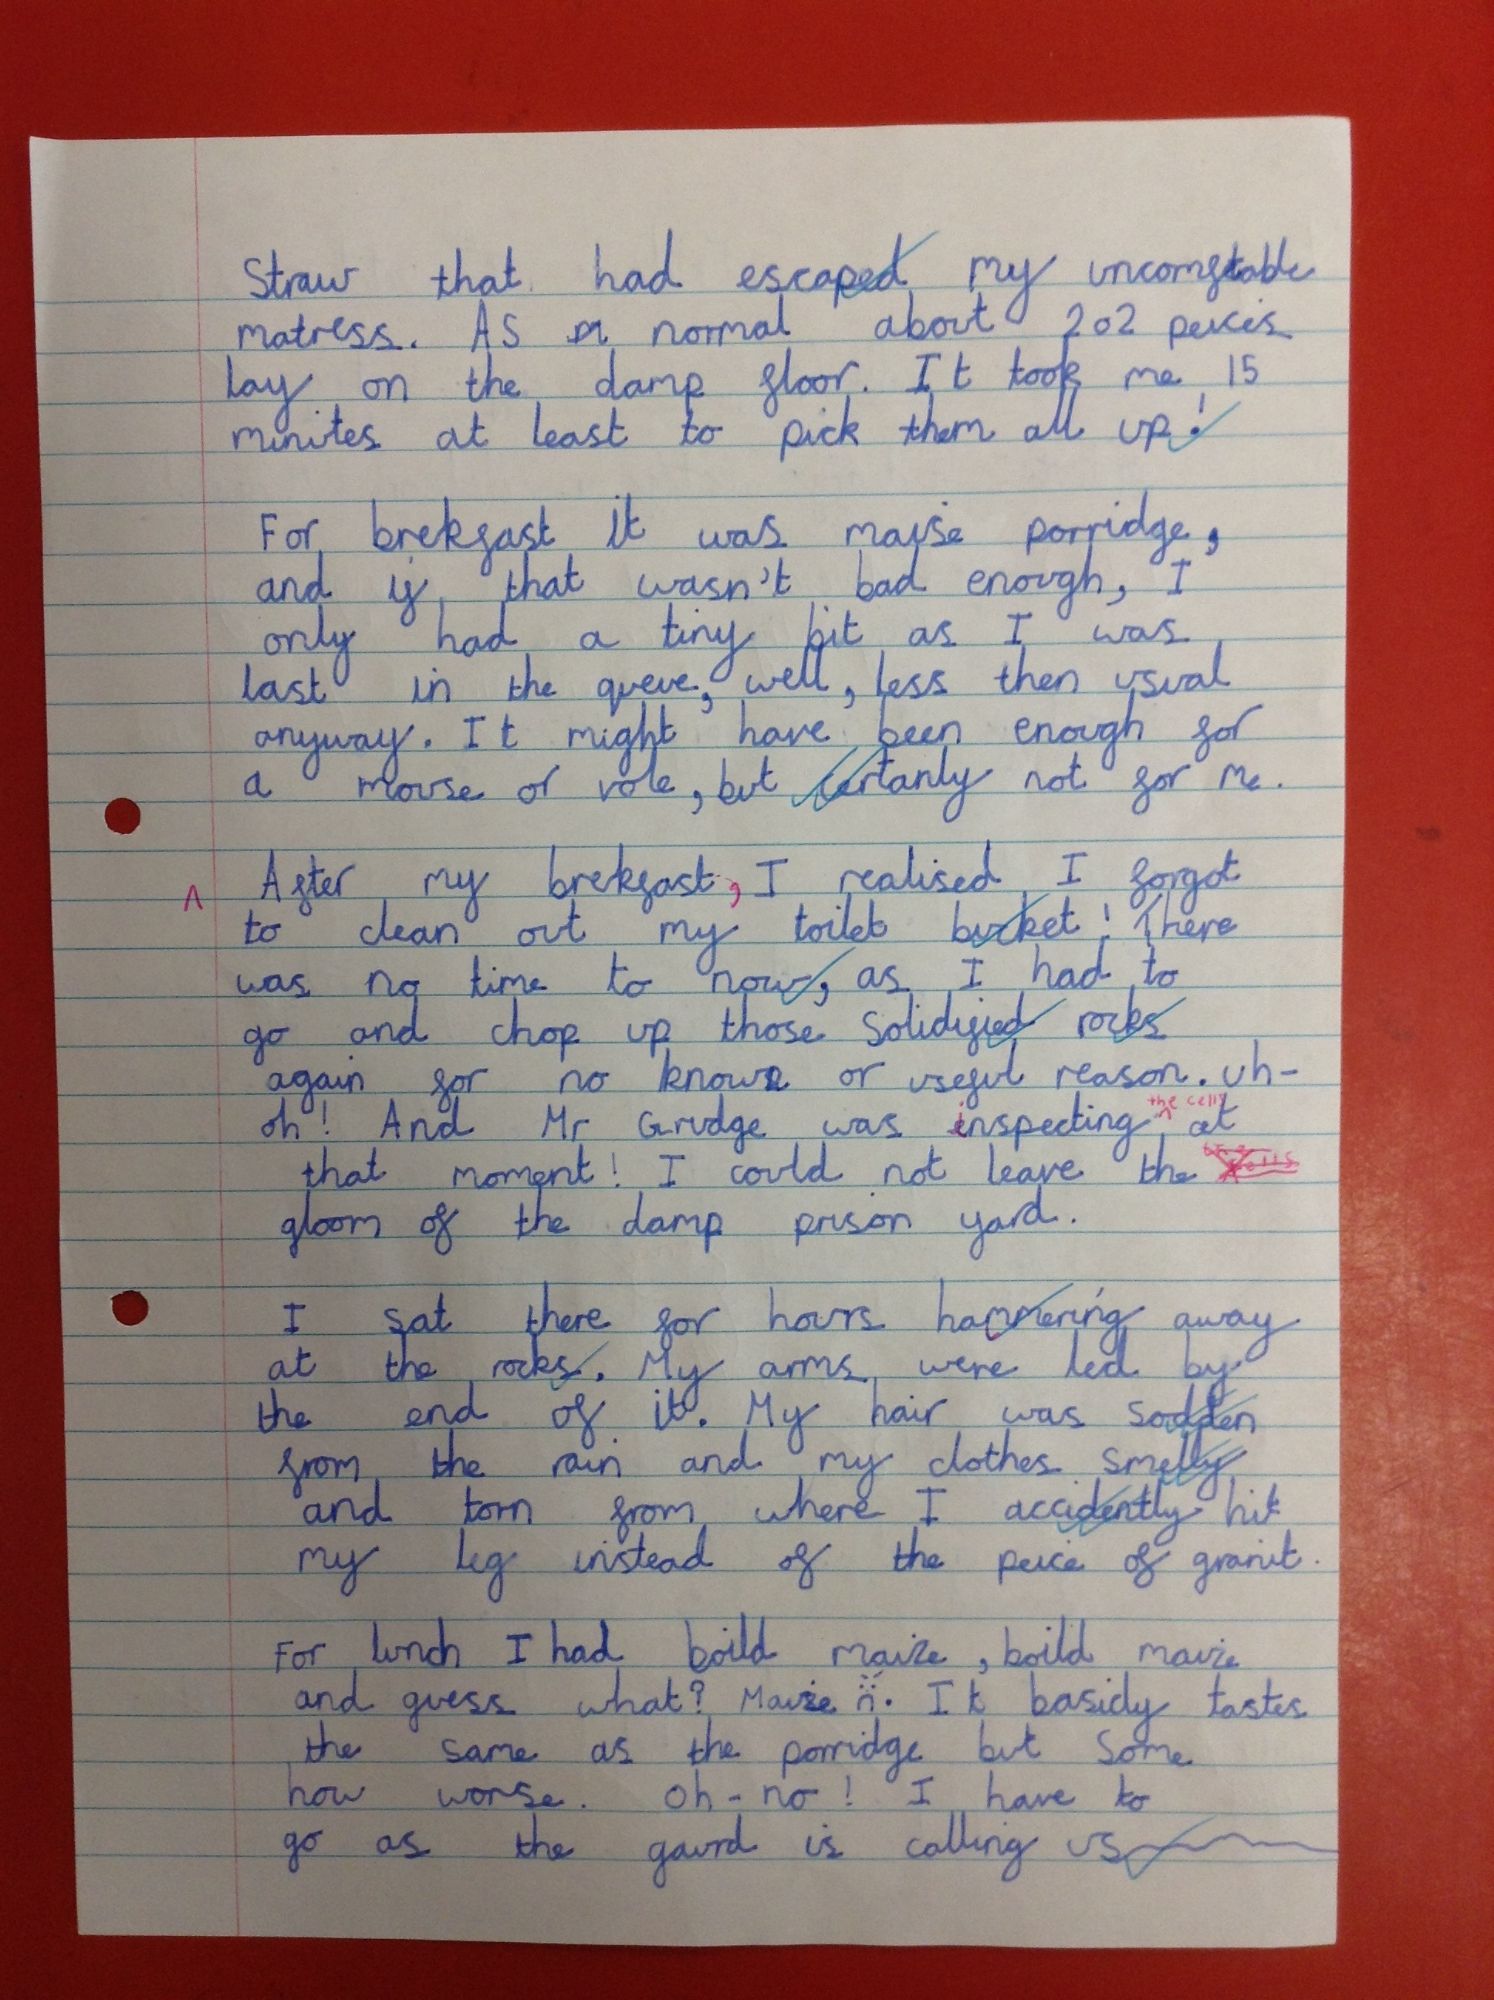 Straw that had escaped my uncomftable
matress. AS normal about 202 peices
lay on the damp floor. It took me 15
minites at least to pick them all up!
For brekfast it was mayse porridge,
and if that wasn't bad enough, I
only had a tiny bit as I was
last in the queue, well, less then usual
anyway. It might have been enough for
a mouse or vole, but certanly not for me.
After my brekfast, I realised I forgot
to clean out my toilet bucket! There
was no time to now, as I had to
go and chop up those solidified rocks
again for no known or useful reason. uh-
oh! And Mr Grudge was inspecting the cells at
that moment! I could not leave the
gloom of the damp prison yard.
I sat there for hours hammering away
at the rocks. My arms were led by
the end of it. My hair was sodden
from the rain and my clothes smelly
and torn from where I accidently hit
my leg instead of the peice of granit.
For lunch I had boild maize, boild maize
and guess what? Maize. It basicly tastes
the same as the porridge but some
how worse. Oh-no! I have to
go as the gaurd is calling us